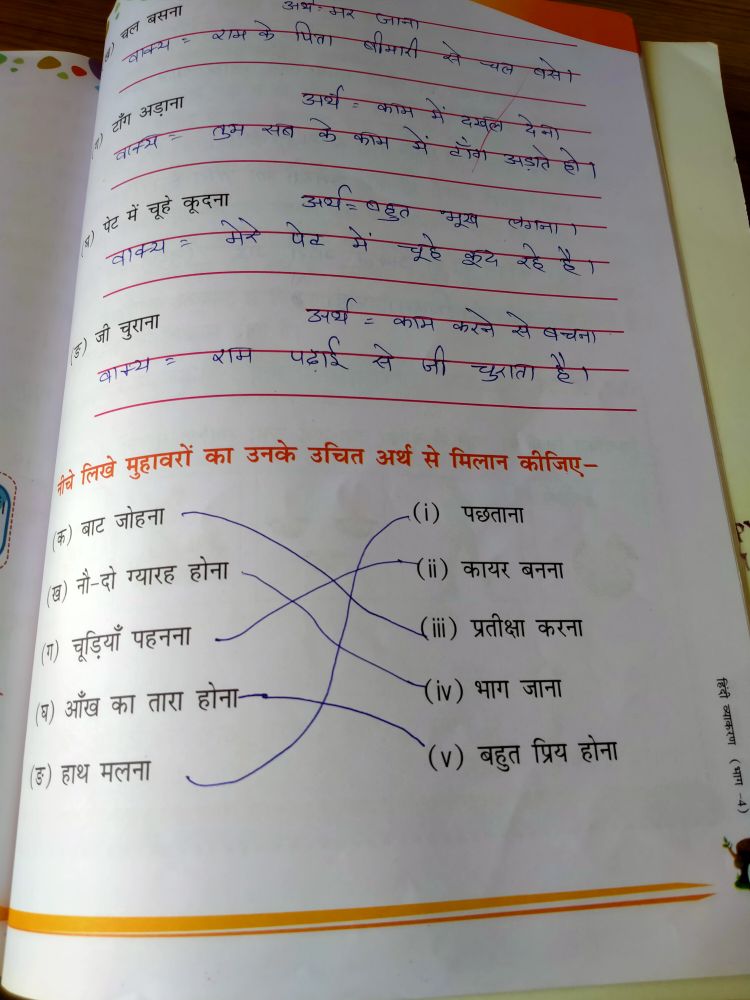 ) चल बसना अर्थ - मर जाना
वाक्य = राम के पिता बीमारी से चल बसे।
) टाँग अड़ाना अर्थ = काम में दखल देना
वाक्य = तुम सब के काम में टाँग अड़ाते हो।
(घ) पेट में चूहे कूदना अर्थ = बहुत भूख लगना।
वाक्य = मेरे पेट में चूहे कूद रहे है।
(ङ) जी चुराना अर्थ = काम करने से बचना
वाक्य = राम पढ़ाई से जी चुराता है।
नीचे लिखे मुहावरों का उनके उचित अर्थ से मिलान कीजिए–
(क) बाट जोहना (i) पछताना
(ख) नौ-दो ग्यारह होना (ii) कायर बनना
(ग) चूड़ियाँ पहनना (iii) प्रतीक्षा करना
(घ) आँख का तारा होना (iv) भाग जाना
(ङ) हाथ मलना (v) बहुत प्रिय होना
हिंदी व्याकरण (भाग -4)